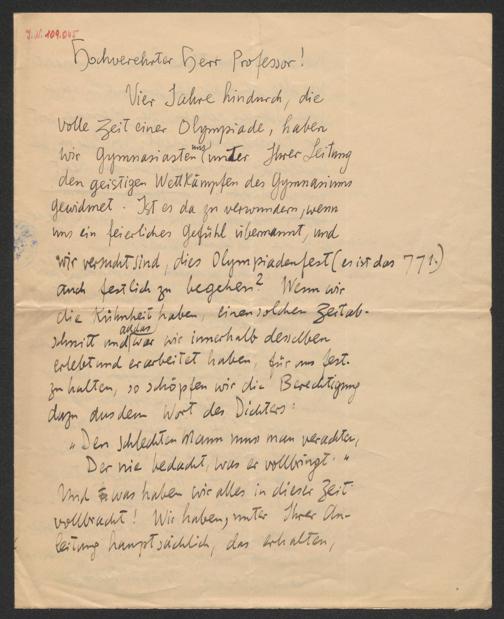 J.N. 109.045
Hochverehrter Herr Professor!
Vier Jahre hindurch, die
volle Zeit einer Olympiade, haben
wir Gymnasiasten uns unter Ihrer Leitung
den geistigen Wettkämpfen des Gymnasiums
gewidmet. Ist es da zu verwundern, wenn
uns ein feierliches Gefühl übermannt, und
wir versucht sind, dies Olympiadenfest (es ist das 771.)
auch festlich zu begehen? Wenn wir
die Kühnheit haben, einen solchen Zeitab-
schnitt und das was wir innerhalb desselben
erlebt und erarbeitet haben, für uns fest-
zuhalten, so schöpfen wir die Berechtigung
dazu aus dem Wort des Dichters:
"Den schlechten Mann muss man verachten,
Der nie bedacht, was er vollbringt."
Und was haben wir alles in dieser Zeit
vollbracht! Wir haben, unter Ihrer An-
leitung hauptsächlich, das erhalten,